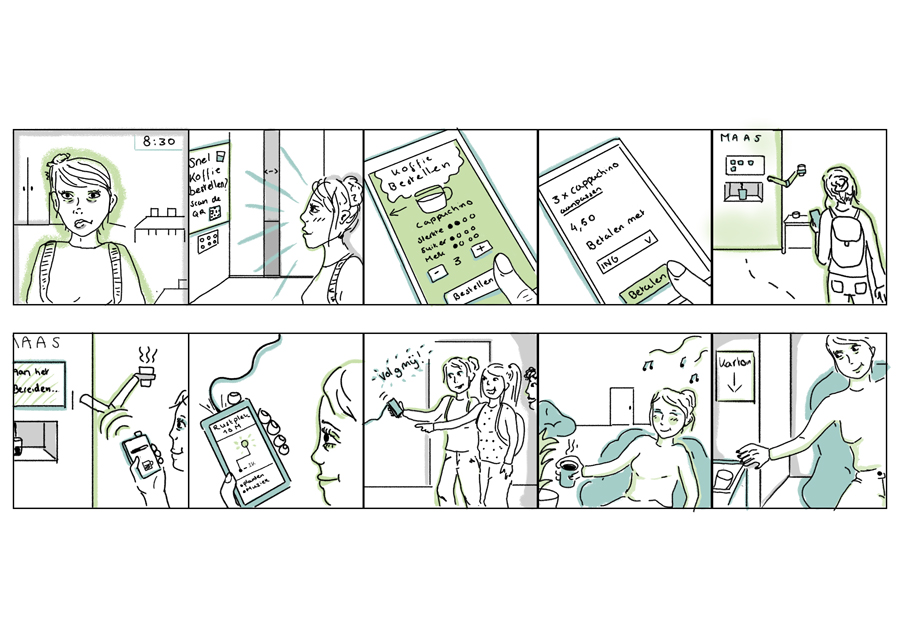 8:30
Snel
Koffie
bestellen?
Scan de
QR
<->
Koffie
Bestellen
Cappuchino
Sterkte
Suiker
Melk
- 3 +
Bestellen
3 x cappuchino
aanpassen
4,50
Betalen met
ING
Betalen
MAAS
MAAS
Aan het
Bereiden..
Rustplek
10 M
+ planten
+ Muziek
Volg mij!
Karton